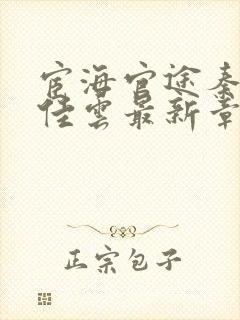 宦海官途秦
佳雲最新章
正宗包子